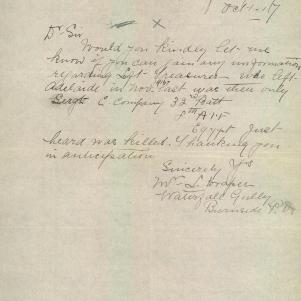 Oct 1-17
Dr Sir
Would you kindly let me
know if you can gain any information
regarding Lft Treasure who left
Adelaide in Nov. last was then only
Sergt E Company 32nd Batt
8th AIF
Egypt Just
heard was killed. Thanking you
in anticipation
Sincerely Y's
Mrs L Draper
Waterfall Gully
Burnside